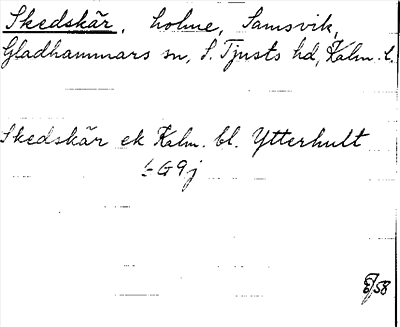 Skedskär, holme, Samsvik,
Gladhammars sn, S. Tjusts hd, Kalm. l.
Skedskär ek Kalm. bl. Ytterhult
G9j
/58